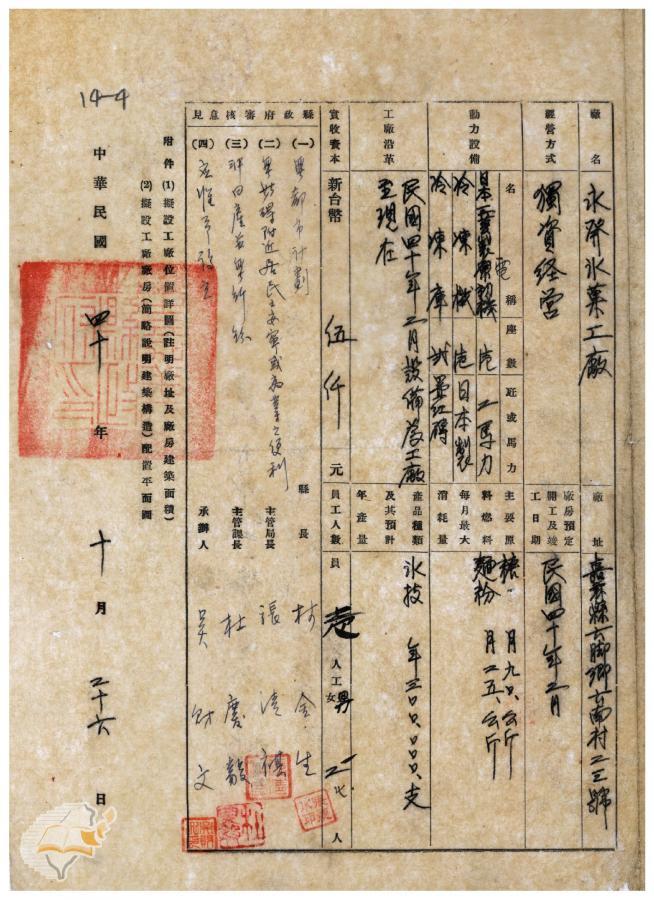 14-4
廠名 永發氷菓工廠
廠址 嘉義縣六脚鄉古南村二三號
經營方式 獨資経営
廠房預定開工及竣工日期 民國四十年二月
動力設備
名稱 座數 匹或馬力
電
冷凍機 壱 日本製
冷凍庫
主要原料燃料每月最大消耗量
糖. 月九〇.公斤
麵粉 月二五.公斤
工廠沿革 民國四十年二月設備為工廠至現在
產品種類及其預計年產量
氷技 年三〇〇.〇〇〇.支
實收資本 新台幣 伍仟 元
員工人數 員 壱 人 工 男 二 女 七. 人
縣政府審核意見
(一) 與都市計劃
縣長 村金生
(二) 與公共場附近居民之安寧或为業之便利
主管局長 張清
(三)
主管課長 杜慶
(四)
承辦人 吳財文
附件 (1) 擬設工廠位置詳圖(註明廠址及廠房建築面積)
(2) 擬設工廠廠房(簡略說明建築構造)配置平面圖
中華民國 四十 年 十 月 二十六 日